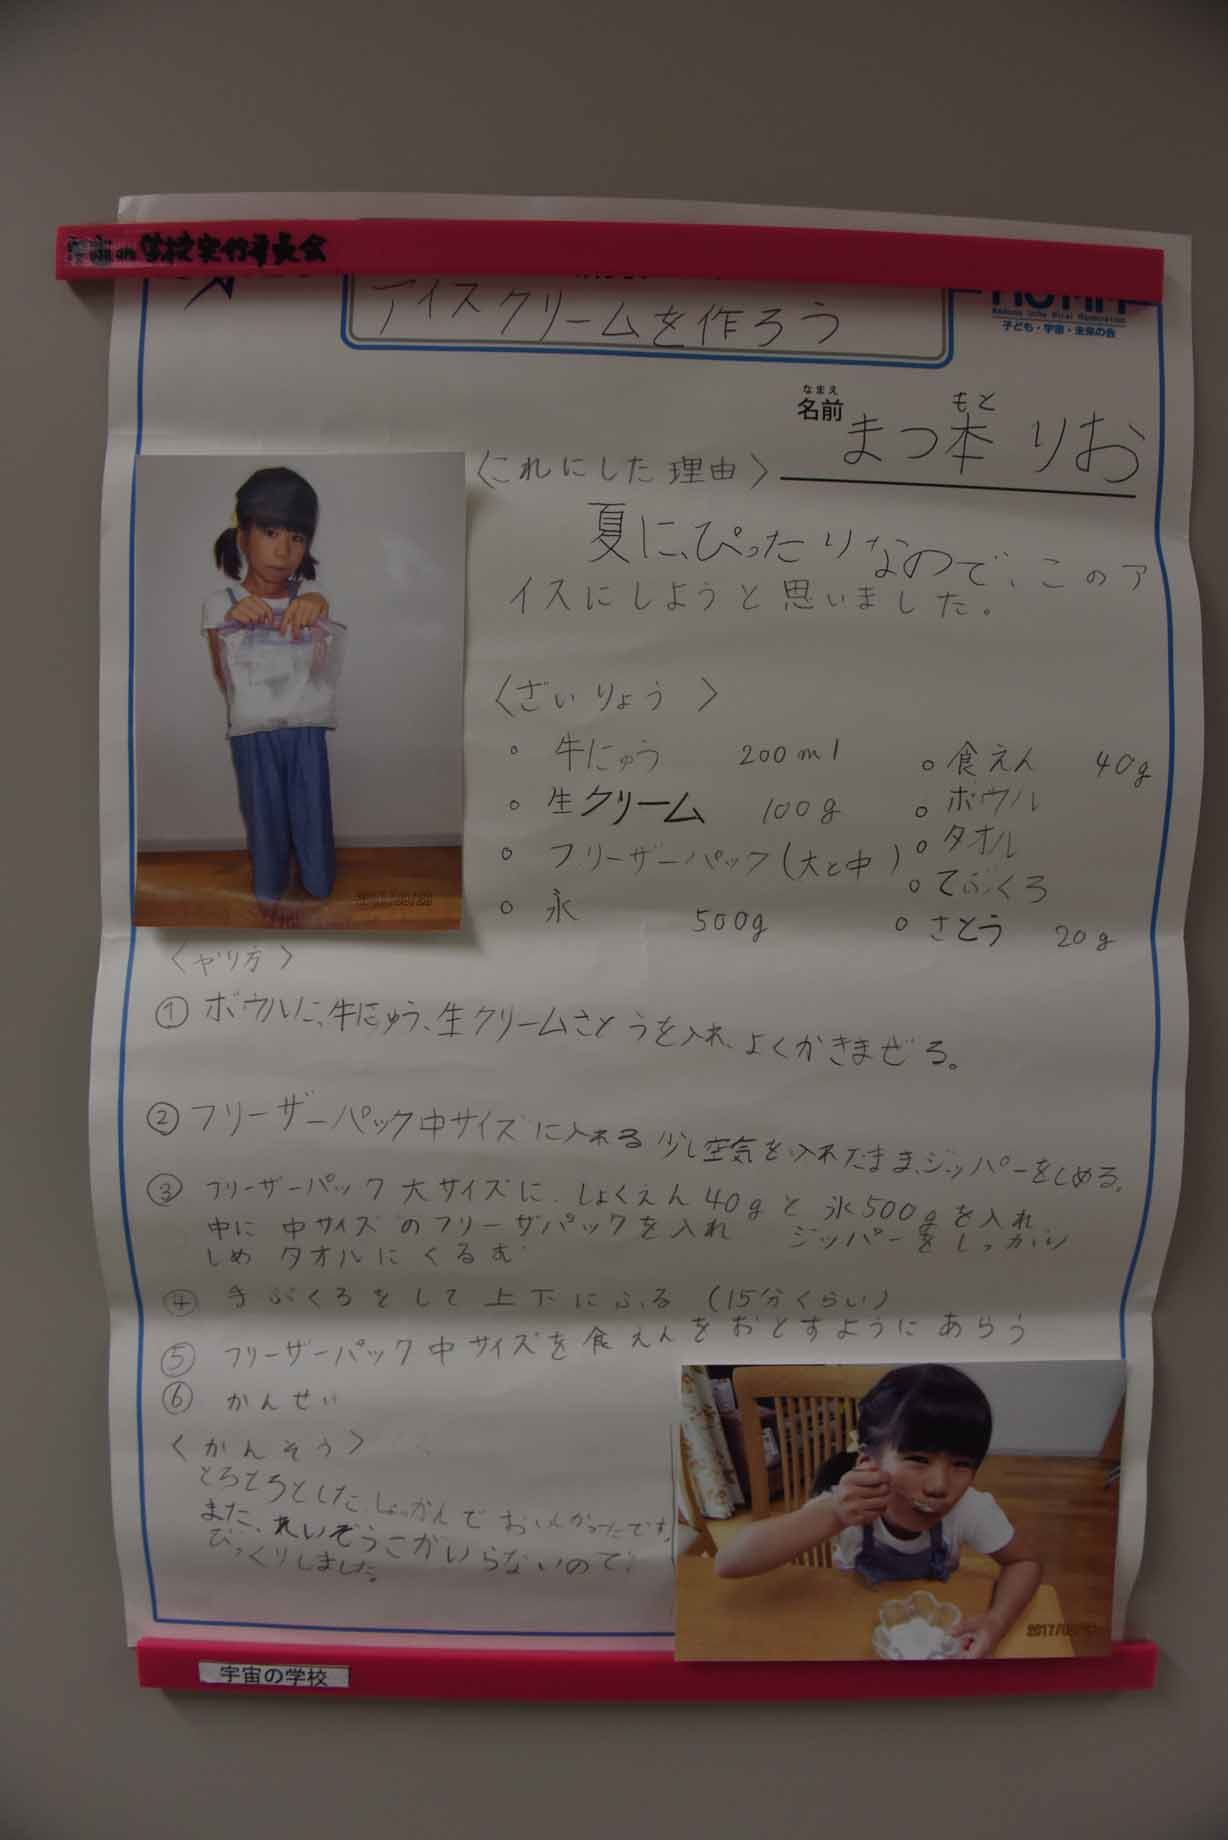 学校実行委員会
アイスクリームを作ろう
Kodomo Uchu Mirai Association
子ども・宇宙・未来の会
なまえ
名前
もと
まつ本 りお
〈これにした理由〉
夏に、ぴったりなので、このア
イスにしようと思いました。
〈ざいりょう〉
○ 牛にゅう 200ml
○ 生クリーム 100g
○ フリーザーパック(大と中)
○ 氷 500g
○ 食えん 40g
○ ボウル
○ タオル
○ てぶくろ
○ さとう 20g
〈やり方〉
① ボウルに、牛にゅう、生クリームさとうを入れ、よくかきまぜる。
② フリーザーパック中サイズに入れる 少し空気を入れたまま、ジッパーをしめる。
③ フリーザーパック大サイズに、しょくえん40gと 氷500gを入れ、
中に 中サイズのフリーザパックを入れ ジッパーをしっかり
しめ タオルにくるむ
④ 手ぶくろをして上下にふる (15分くらい)
⑤ フリーザーパック中サイズを食えんをおとすようにあらう
⑥ かんせい
〈かんそう〉
とろとろとした、しょっかんでおいしかったです。
また、れいぞうこがいらないので、
びっくりしました。
宇宙の学校